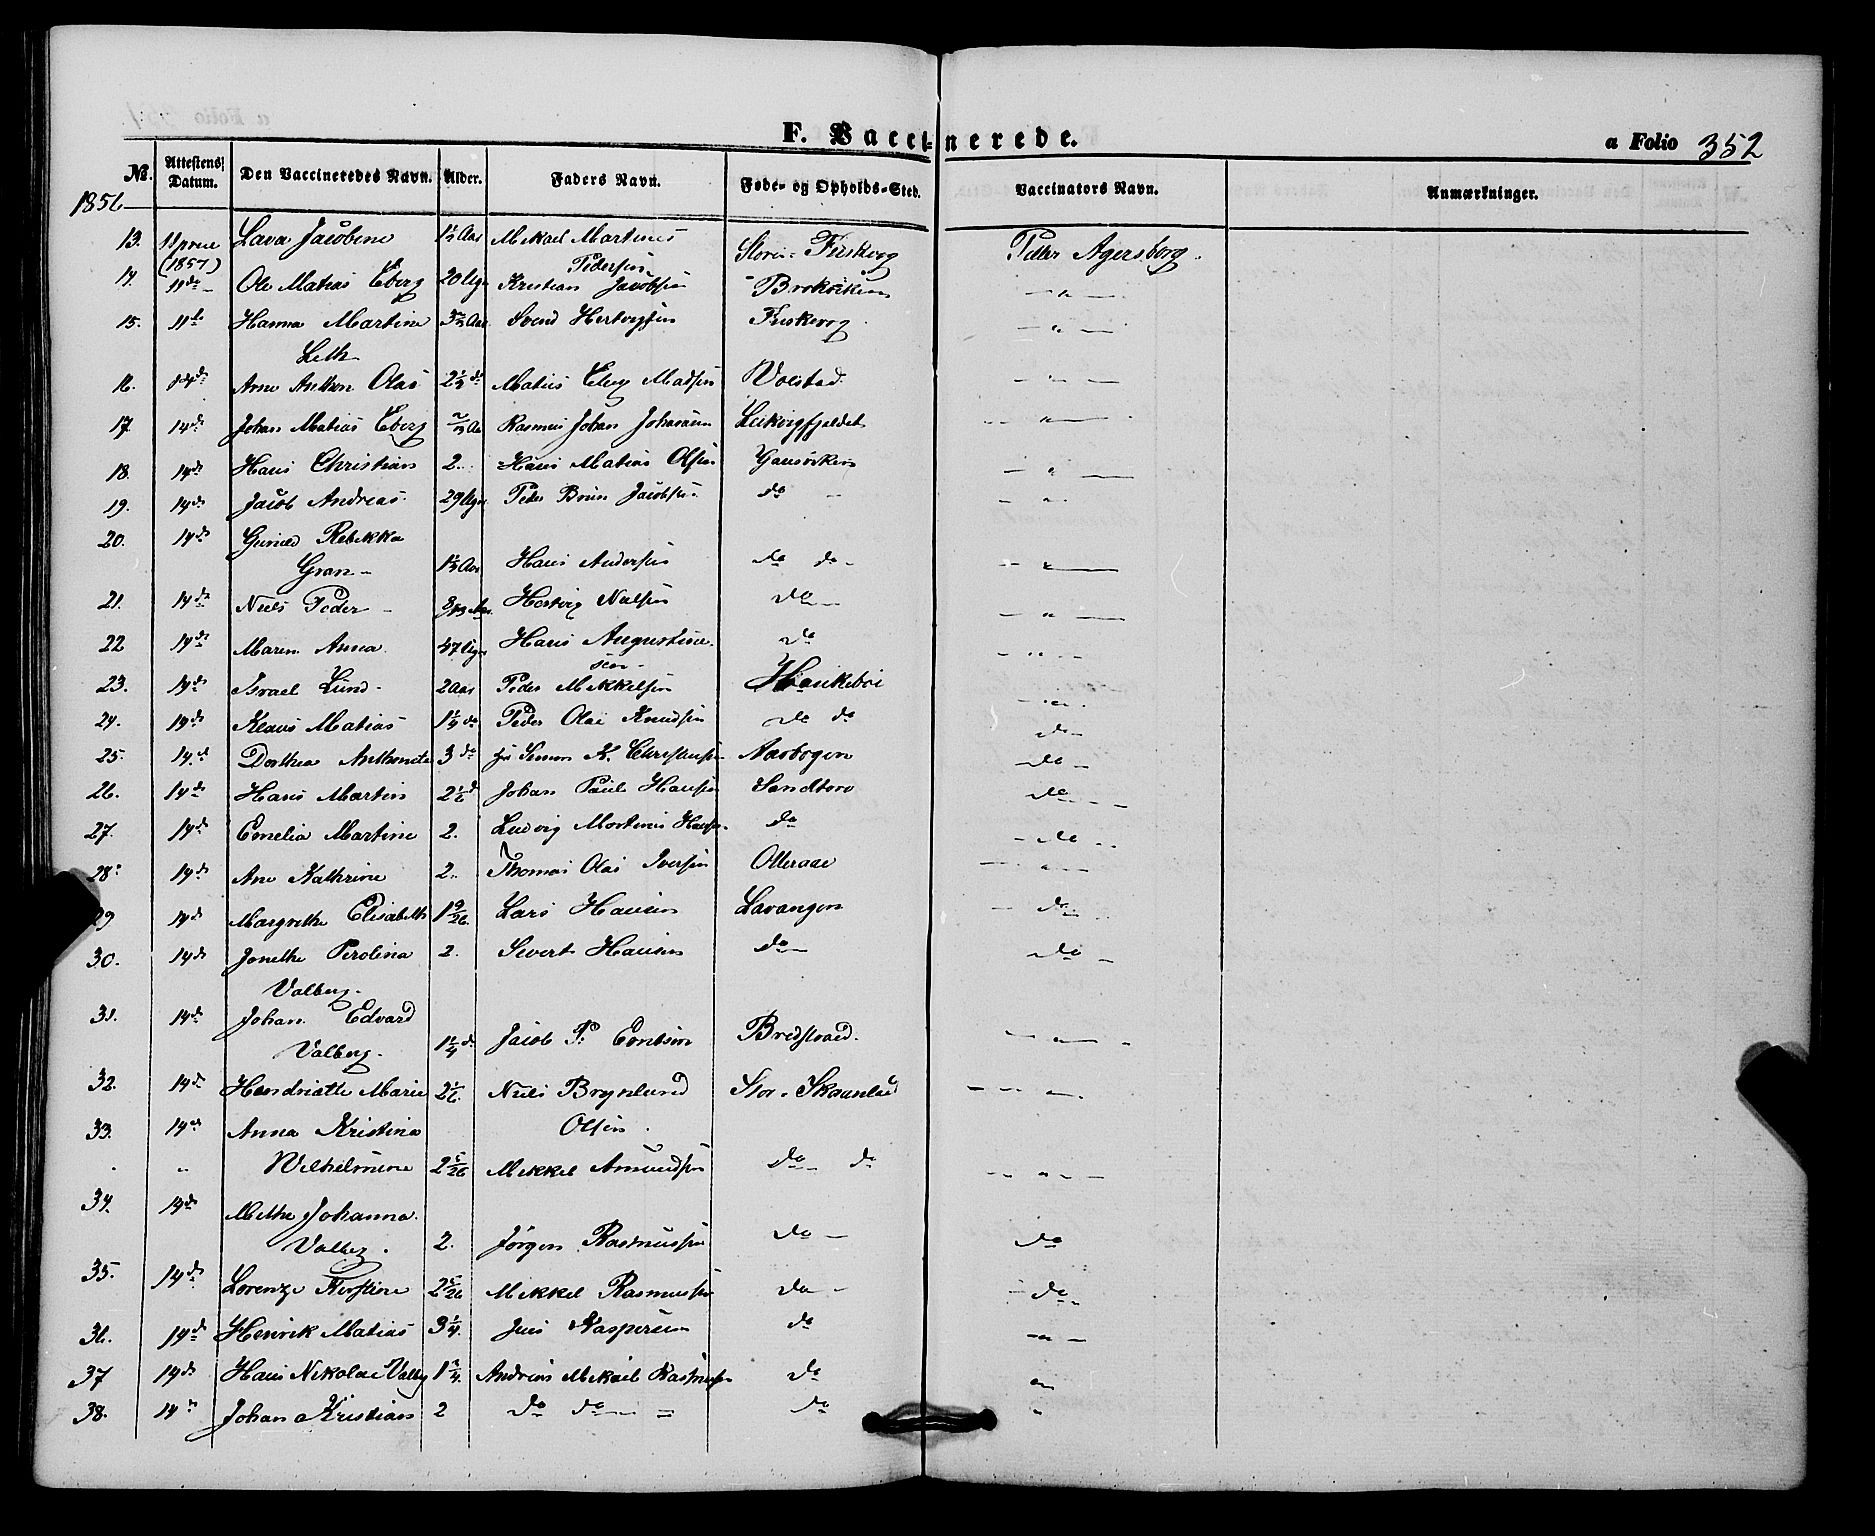 F. Vaccinerede.
a Folio 352
No. Attestens Datum. Den Vaccineredes Navn. Alder. Faders Navn. Føde- og Opholds-Sted. Vaccinators Navn. Anmærkninger.
1856
13. Lava Jacobine 1½ Aar Mikael Martinus
(1857) Pedersen Store Fiskevog Peder Agersborg.
14. 11 do Ole Matias Eberg 20 Ugr Kristian Jacobsen Brokviken
15. 11 Hanna Martine Svend Hertvigsen Fiskevog
Leth
16. do Arne Anthon Olai 2½ do Matias Eberg Madsen Volstad
17 14 do Johan Matias Eberg Rasmus Johan Johansen Leikvigfjeldet
18. 14 do Hans Christian 2 Hans Matias Olsen Gausviken
19. 14 do Jacob Andreas 29 Ugr Peder Brun Jacobsen do
20. 14 do Rebekka
Gran 1½ Aar Hans Andersen do do
21. 14 do Niels Peder Hertvig Nilsen do
22 14 do Maren Anna 47 Ugr Hans Augustinu-
sen do
23. 14 do Israel Lund 2 Aar Peder Mikkelsen
24. 14 do Klaus Matias 1¼ do Peder Olai Knudsen do do
25. 14 d Dorthea Anthonette 3 do Simon K. Christensen Aasbogen do
26. 14 do Hans Martin 2 1/6 d Johan Paul Hansen Sandtorv do
27. 14 do Emelia Martine 2. Ludvig Mortenus Hansen do do
28. 14 do Ane Kathrine 2. Thomas Olai Iversen Olleraae
29 14 do Margrethe Elisabeth 1 9/26 Lars Hansen Lavangen do
30. 14 do Jonethe Perolina 2. Sivert Hansen do do
Valberg.
31. 14 do Johan Edvard
Valberg. 1¼ d Jacob P. Bredstrand.
32. 14 do Hendriette Marie 2 1/6 Niels Brynlund Stor-Skaanland
Olsen
33. 14 do Anna Kristina
Wilhelmine 2 5/26 Mikkel Amundsen do do
34. 14 do Methe Johanna
Valberg. 2. Jørgen Rasmussen do do
35. 14 do Lorenze Kirstine 2 5/26 Mikkel Rasmussen do do
36. 14 do Henrik Matias 3¼ Jens Kaspersen do
37 14 do Hans Nikolai Valberg 1¾ Andreas Mikael Rasmussen do
38. 14 Johan Kristian 2 do do do